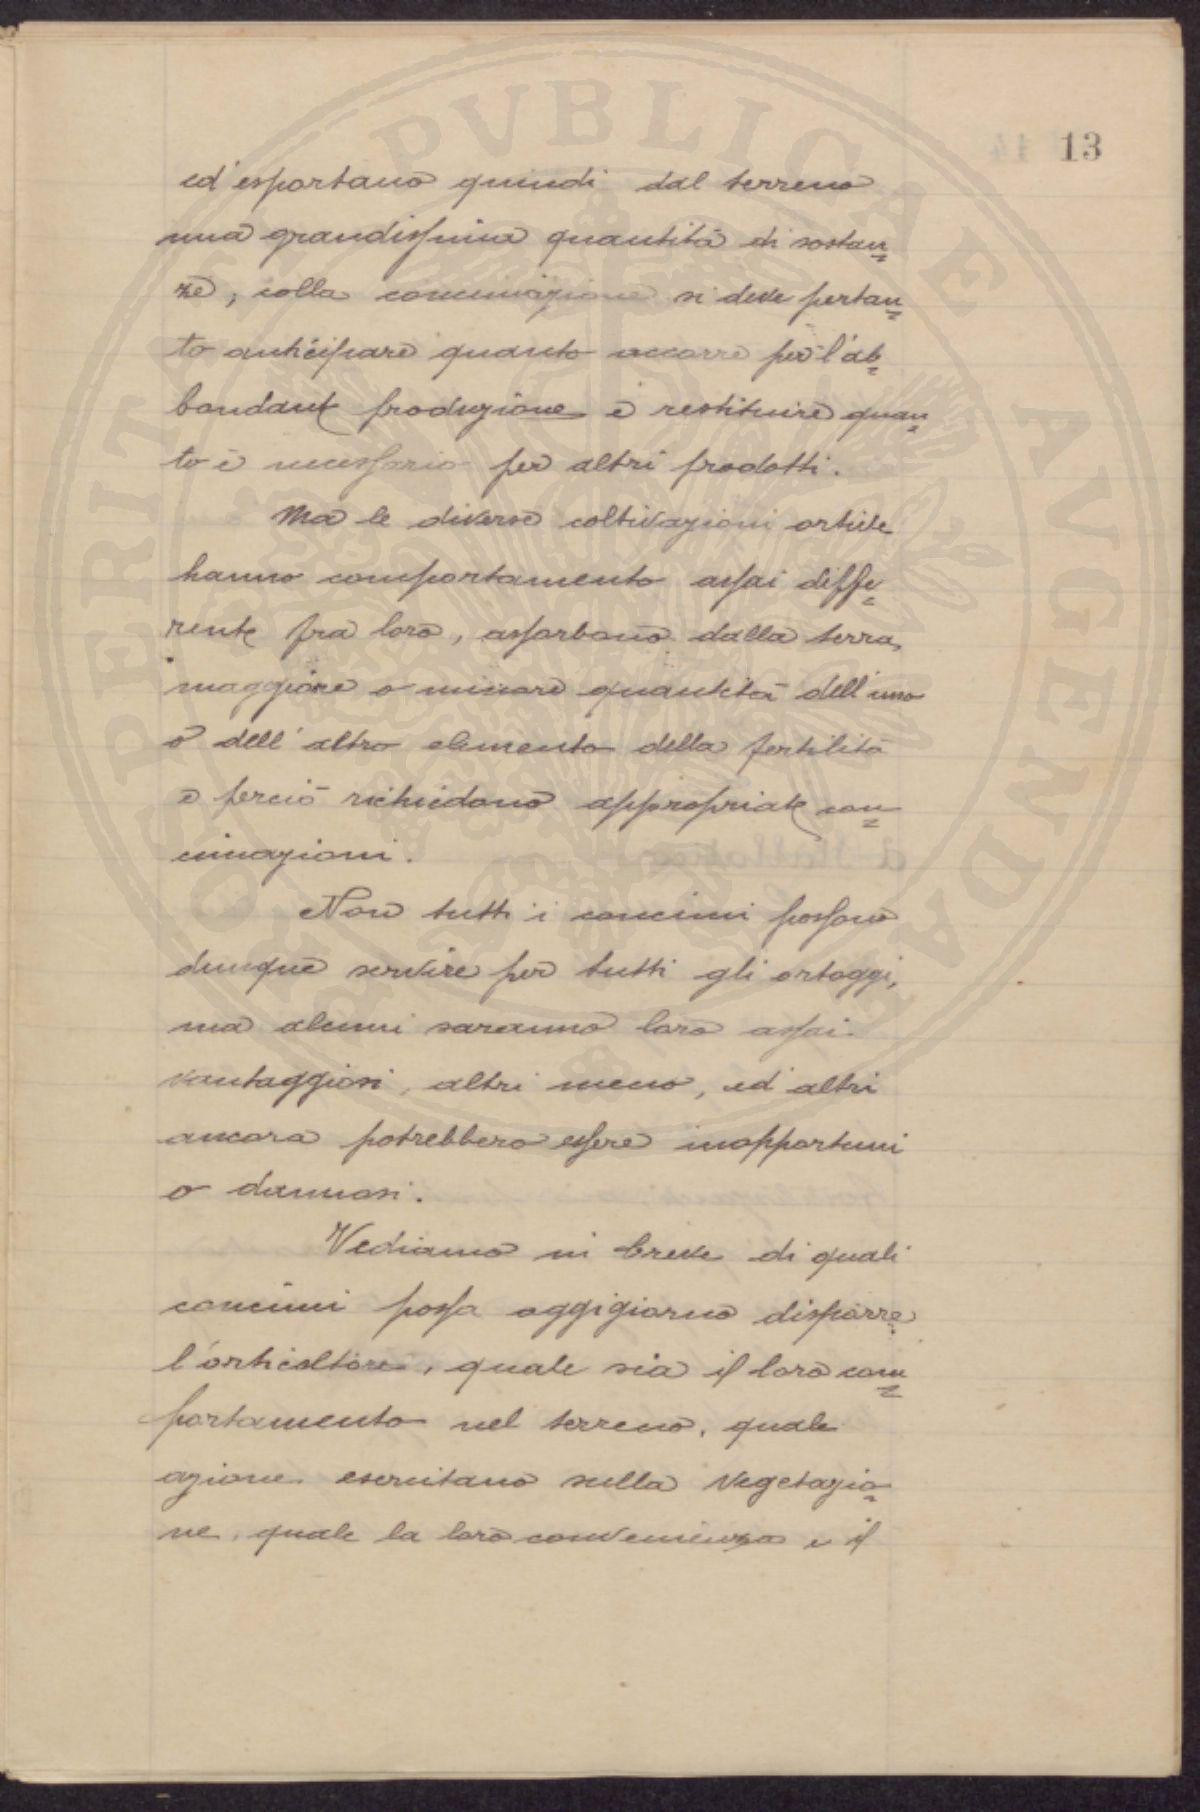 13
ed esportano quindi dal terreno
una grandissima quantità di sostan=
ze, colla concimazione si deve pertan=
to anticipare quanto occorre per l'ab=
bondante produzione e restituire quan=
to è necessario per altri prodotti.
Ma le diverse coltivazioni ortive
hanno comportamento assai diffe=
rente fra loro, assorbono dalla terra
maggiore o minore quantità dell'uno
o dell'altro elemento della fertilità
e perciò richiedono appropriate con=
cimazioni.
Non tutti i concimi possono
dunque servire per tutti gli ortaggi,
ma alcuni saranno loro assai
vantaggiosi, altri meno, ed altri
ancora potrebbero essere inopportuni
o dannosi.
Vediamo in breve di quali
concimi possa oggigiorno disporre
l'orticoltore, quale sia il loro com=
portamento nel terreno, quale
azione esercitano sulla vegetazio=
ne, quale la loro convenienza e il
PERITAT PVBLICAE AVGENDAE